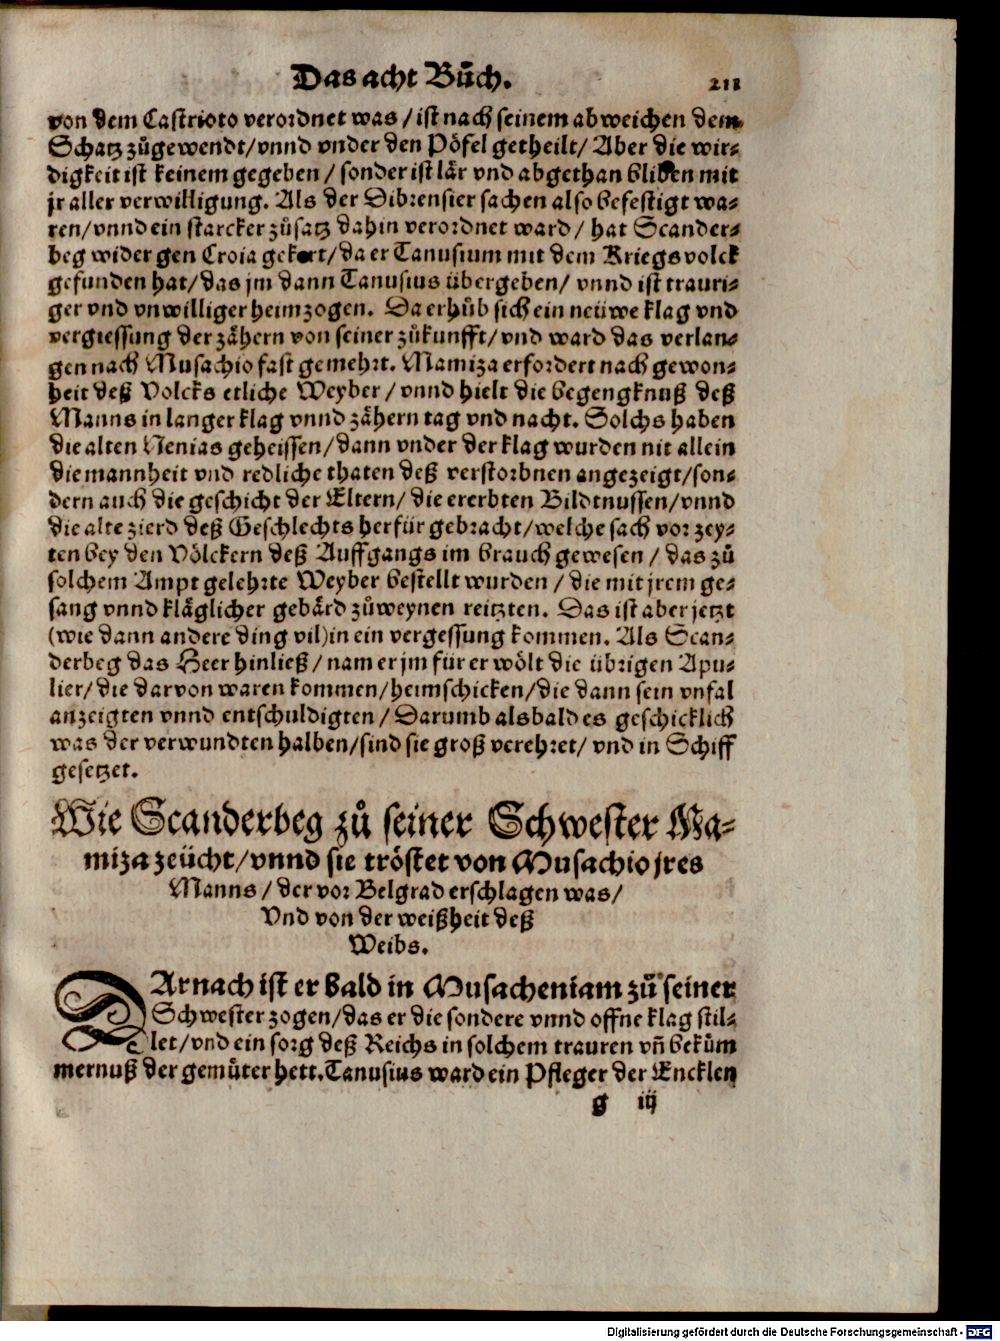 Das acht Bůch. 211
von dem Castrioto verordnet was / ist nach seinem abweichen dem
Schatz zůgewendt/vnnd vnder den Pöfel getheilt/ Aber die wir-
digkeit ist keinem gegeben / sonder ist lär vnd abgethan bliben mit
jr aller verwilligung. Als der Dibrensier sachen also befestigt wa-
ren/vnnd ein starcker zůsatz dahin verordnet ward / hat Scander-
beg wider gen Croia gekert/da er Tanusium mit dem Kriegsvolck
gefunden hat/das jm dann Tanusius übergeben/ vnnd ist trauri-
ger vnd vnwilliger heimzogen. Da erhůb sich ein neüwe klag vnd
vergiessung der zähern von seiner zůkunfft/vnd ward das verlan-
gen nach Musachio fast gemehrt. Mamiza erfordert nach gewon-
heit deß Volcks etliche Weyber / vnnd hielt die begengknuß deß
Manns in langer klag vnnd zähern tag vnd nacht. Solchs haben
die alten Nenias geheissen/dann vnder der klag wurden nit allein
die mannheit vnd redliche thaten deß verstorbnen angezeigt/son-
dern auch die geschicht der Eltern/ die ererbten Bildtnussen/vnnd
die alte zierd deß Geschlechts herfür gebracht/welche sach vor zey-
ten bey den Völckern deß Auffgangs im brauch gewesen / das zů
solchem Ampt gelehrte Weyber bestellt wurden / die mit jrem ge-
sang vnnd kläglicher gebärd zůweynen reitzten. Das ist aber jetzt
(wie dann andere ding vil)in ein vergessung kommen. Als Scan-
derbeg das Heer hinließ / nam er jm für er wölt die übrigen Apu-
lier/die darvon waren kommen/heimschicken/die dann sein vnfal
anzeigten vnnd entschuldigten / Darumb als bald es geschicklich
was der verwundten halben/sind sie groß verehret/ vnd in Schiff
gesetzet.
Wie Scanderbeg zů seiner Schwester Ma-
miza zeücht/vnnd sie tröstet von Musachio jres
Manns / der vor Belgrad erschlagen was/
Vnd von der weißheit deß
Weibs.
DArnach ist er bald in Musacheniam zů seiner
Schwester zogen/das er die sondere vnnd offne klag stil-
let/vnd ein sorg deß Reichs in solchem trauren vñ beküm
mernuß der gemüter hett. Tanusius ward ein Pfleger der Encklen
g iij
Digitalisierung gefördert durch die Deutsche Forschungsgemeinschaft - DFG